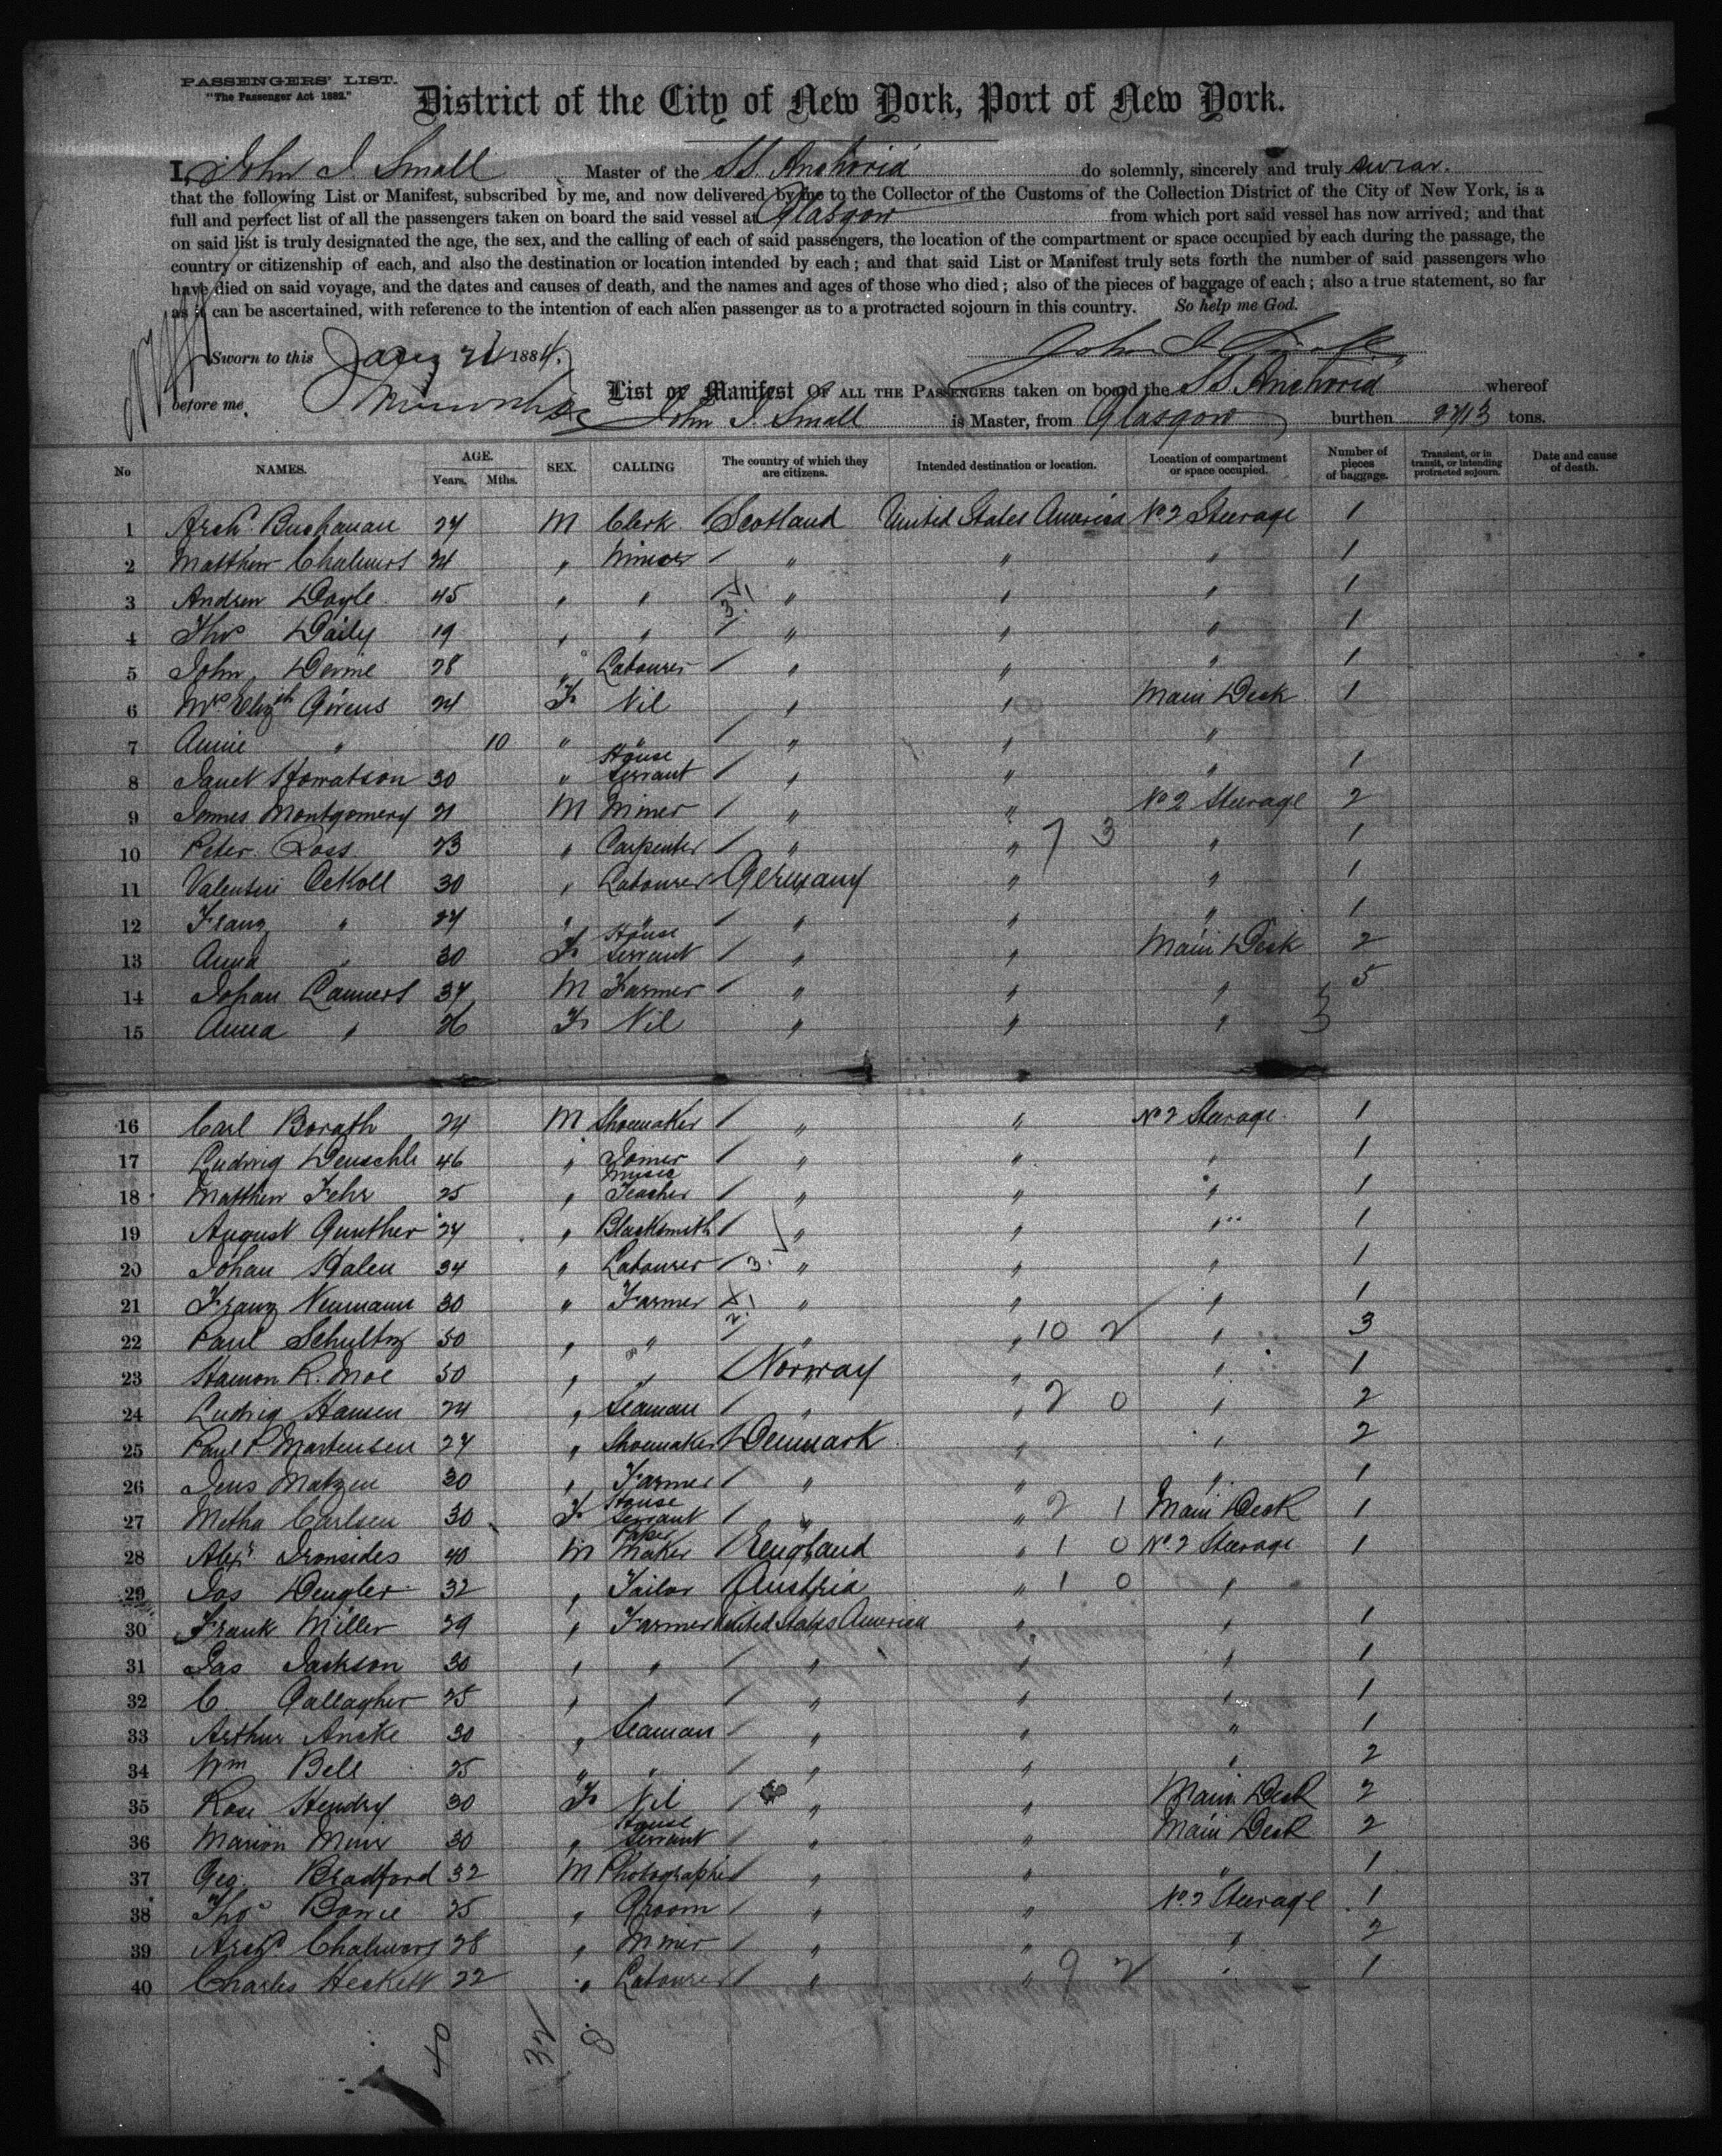 PASSENGERS' LIST.
"The Passenger Act 1882."
District of the City of New York, Port of New York.
I, John I. Small Master of the SS. Anchoria do solemnly, sincerely and truly swear.
that the following List or Manifest, subscribed by me, and now delivered by me to the Collector of the Customs of the Collection District of the City of New York, is a
full and perfect list of all the passengers taken on board the said vessel at Glasgow from which port said vessel has now arrived; and that
on said list is truly designated the age, the sex, and the calling of each of said passengers, the location of the compartment or space occupied by each during the passage, the
country or citizenship of each, and also the destination or location intended by each; and that said List or Manifest truly sets forth the number of said passengers who
have died on said voyage, and the dates and causes of death, and the names and ages of those who died; also of the pieces of baggage of each; also a true statement, so far
as it can be ascertained, with reference to the intention of each alien passenger as to a protracted sojourn in this country. So help me God.
Sworn to this Jany 21 1884. John I Small
before me
List or Manifest OF ALL THE PASSENGERS taken on board the SS. Anchoria whereof
John I. Small is Master, from Glasgow burthen 2713 tons.
No NAMES. AGE. Years. Mths. SEX. CALLING The country of which they are citizens. Intended destination or location. Location of compartment or space occupied. Number of pieces of baggage. Transient, or in transit, or intending protracted sojourn. Date and cause of death.
1 Archd. Buchanan 24 M Clerk Scotland United States America No 2 Steerage 1
2 Matthew Chalmers 24 " Miner / " " " 1
3 Andrew Doyle 45 " " " " " 1
4 Thos Daily 19 " " / " " " 1
5 John Devine 28 " Labourer / " " " 1
6 Mrs Elizth Givens 24 F Nil " " Main Deck 1
7 Annie " 10 " " / " " "
8 Janet Howatson 30 " House Servant / " " " 1
9 James Montgomery 21 M Miner / " " No 2 Steerage 2
10 Peter Ross 23 " Carpenter / " " 7 3 " 1
11 Valentin Ockoll 30 " Labourer Germany " " 1
12 Franz " 24 " " / " " " 1
13 Anna " 30 F House Servant / " " Main Deck 2
14 Johan Lanners 34 M Farmer / " " " 5
15 Anna " 26 F Nil " " "
16 Carl Borath 24 M Shoemaker / " " No 2 Steerage 1
17 Ludwig Deuschle 46 " Joiner / " " " 1
18 Matthew Fehr 25 " Music Teacher / " " " 1
19 August Gunther 24 " Blacksmith / " " " 1
20 Johan Halen 34 " Labourer / 3 " " " 1
21 Franz Neumann 30 " Farmer " " " 1
22 Paul Schultz 50 " " / " " 10 2 " 3
23 Hamon R. Moe 50 " " Norway " " 1
24 Ludvig Hansen 24 " Seaman / " " 2 0 " 2
25 Paul P. Martensen 24 " Shoemaker Denmark " " 2
26 Jens Matzen 30 " Farmer / " " " 1
27 Metha Carlsen 30 F House Servant / " " 2 1 Main Deck 1
28 Alexr Ironsides 40 M Paper Maker England " 1 0 No 2 Steerage 1
29 Jos Dengler 32 " Tailor Austria " 1 0 "
30 Frank Miller 29 " Farmer United States America " " 1
31 Jas Jackson 30 " " / " " " 1
32 C. Gallagher 25 " " / " " " 1
33 Arthur Ancke 30 " Seaman / " " " 1
34 Wm Bell 25 " " / " " " 2
35 Rose Hendry 30 F Nil / " " Main Deck 2
36 Marion Muir 30 " House Servant / " " Main Deck 2
37 Geo. Bradford 32 M Photographer / " " " 1
38 Thos Bowie 25 " Groom / " " No. 2 Steerage 1
39 Archd Chalmers 28 " Miner / " " " 2
40 Charles Heckett 22 " Labourer / " " 9 2 " 1
40 32 8